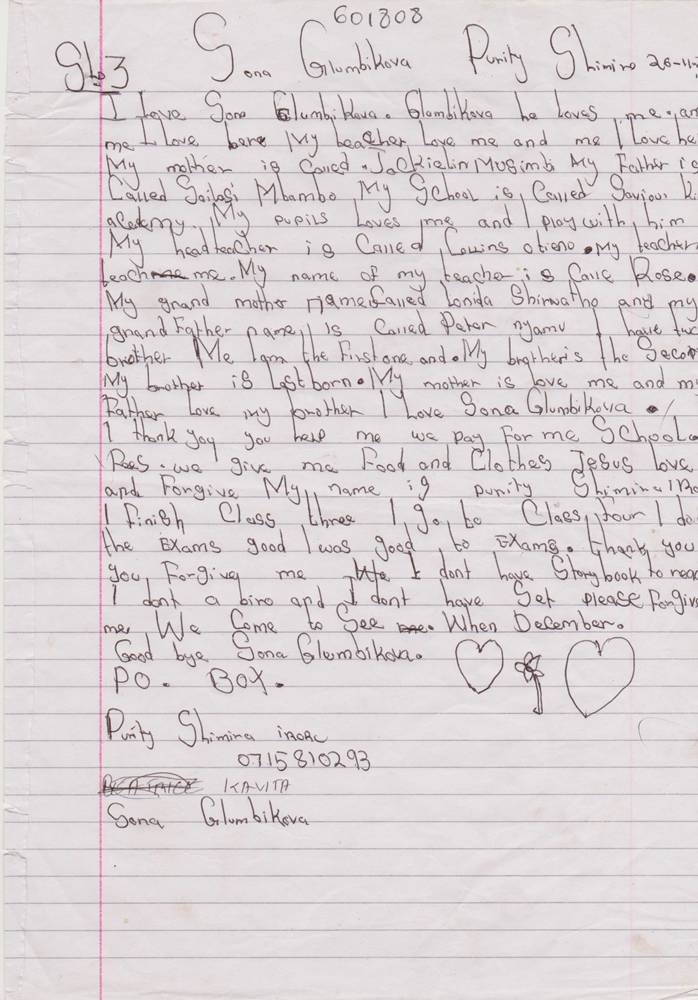 601808
Std 3 Sona Glumbikova Purity Shimiro 26-11-
I love Sona Glumbikova. Glumbikova he loves me. an
me I love here My teacher love me and me I love he
My mother is Called. Jackielin Musimbi My Father is
Called Sailasi Mbambo My School is Called Saviour Ki
academy. My pupils loves me and I play with him
My headteacher is Called Collins otieno. My teacher
teach me. My name of my teacher is Calle Rose.
My grand mother name Called Lonida Shirwatho and my
grand Father name Is Called Peter nyamu I have two
brother Me Iam the First one and. My brother is the Secon
My brother is last born. My mother is love me and m
Father love my brother I love Sona Glumbikova.
I thank yoy you help me we pay For me School
Fees. we give me Food and Clothes Jesus love
and Forgive My name is purity Shimina IRo
I Finish Class three I go to Class four I do
the Exams good I was good to Exams. thank you
you Forgive me I dont have Storybook to rea
I dont a biro and I dont have Set please Forgiv
me We Come to See me. When December.
Good bye Sona Glumbikova.
PO. BOX.
Purity Shimina
0715810293
KAVITA
Sona Glumbikova